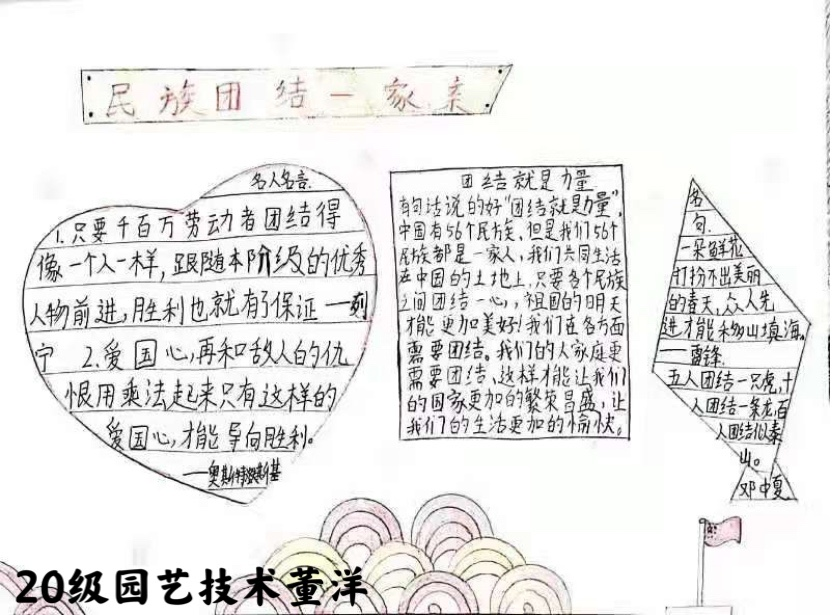 民族团结一家亲
名人名言.
1.只要千百万劳动者团结得
像一个人一样,跟随本阶级的优秀
人物前进,胜利也就有了保证 —列
宁 2.爱国心,再和敌人的仇
恨用乘法起来只有这样的
爱国心,才能导向胜利。
——奥斯特洛夫斯基
团结就是力量
有句话说的好“团结就是力量”,
中国有56个民族、但是我们56个
民族都是一家人,我们共同生活
在中国的土地上,只要各个民族
之间团结一心,祖国的明天
才能更加美好!我们在各方面
需要团结。我们的大家庭更
需要团结,这样才能让我们
的国家更加的繁荣昌盛,让
我们的生活更加的愉快。
名
句.
一朵鲜花
打扮不出美丽
的春天,众人先
进才能移山填海。
——雷锋.
五人团结一只虎,十
人团结一条龙,百
人团结似泰
山。
邓中夏
20级园艺技术董洋